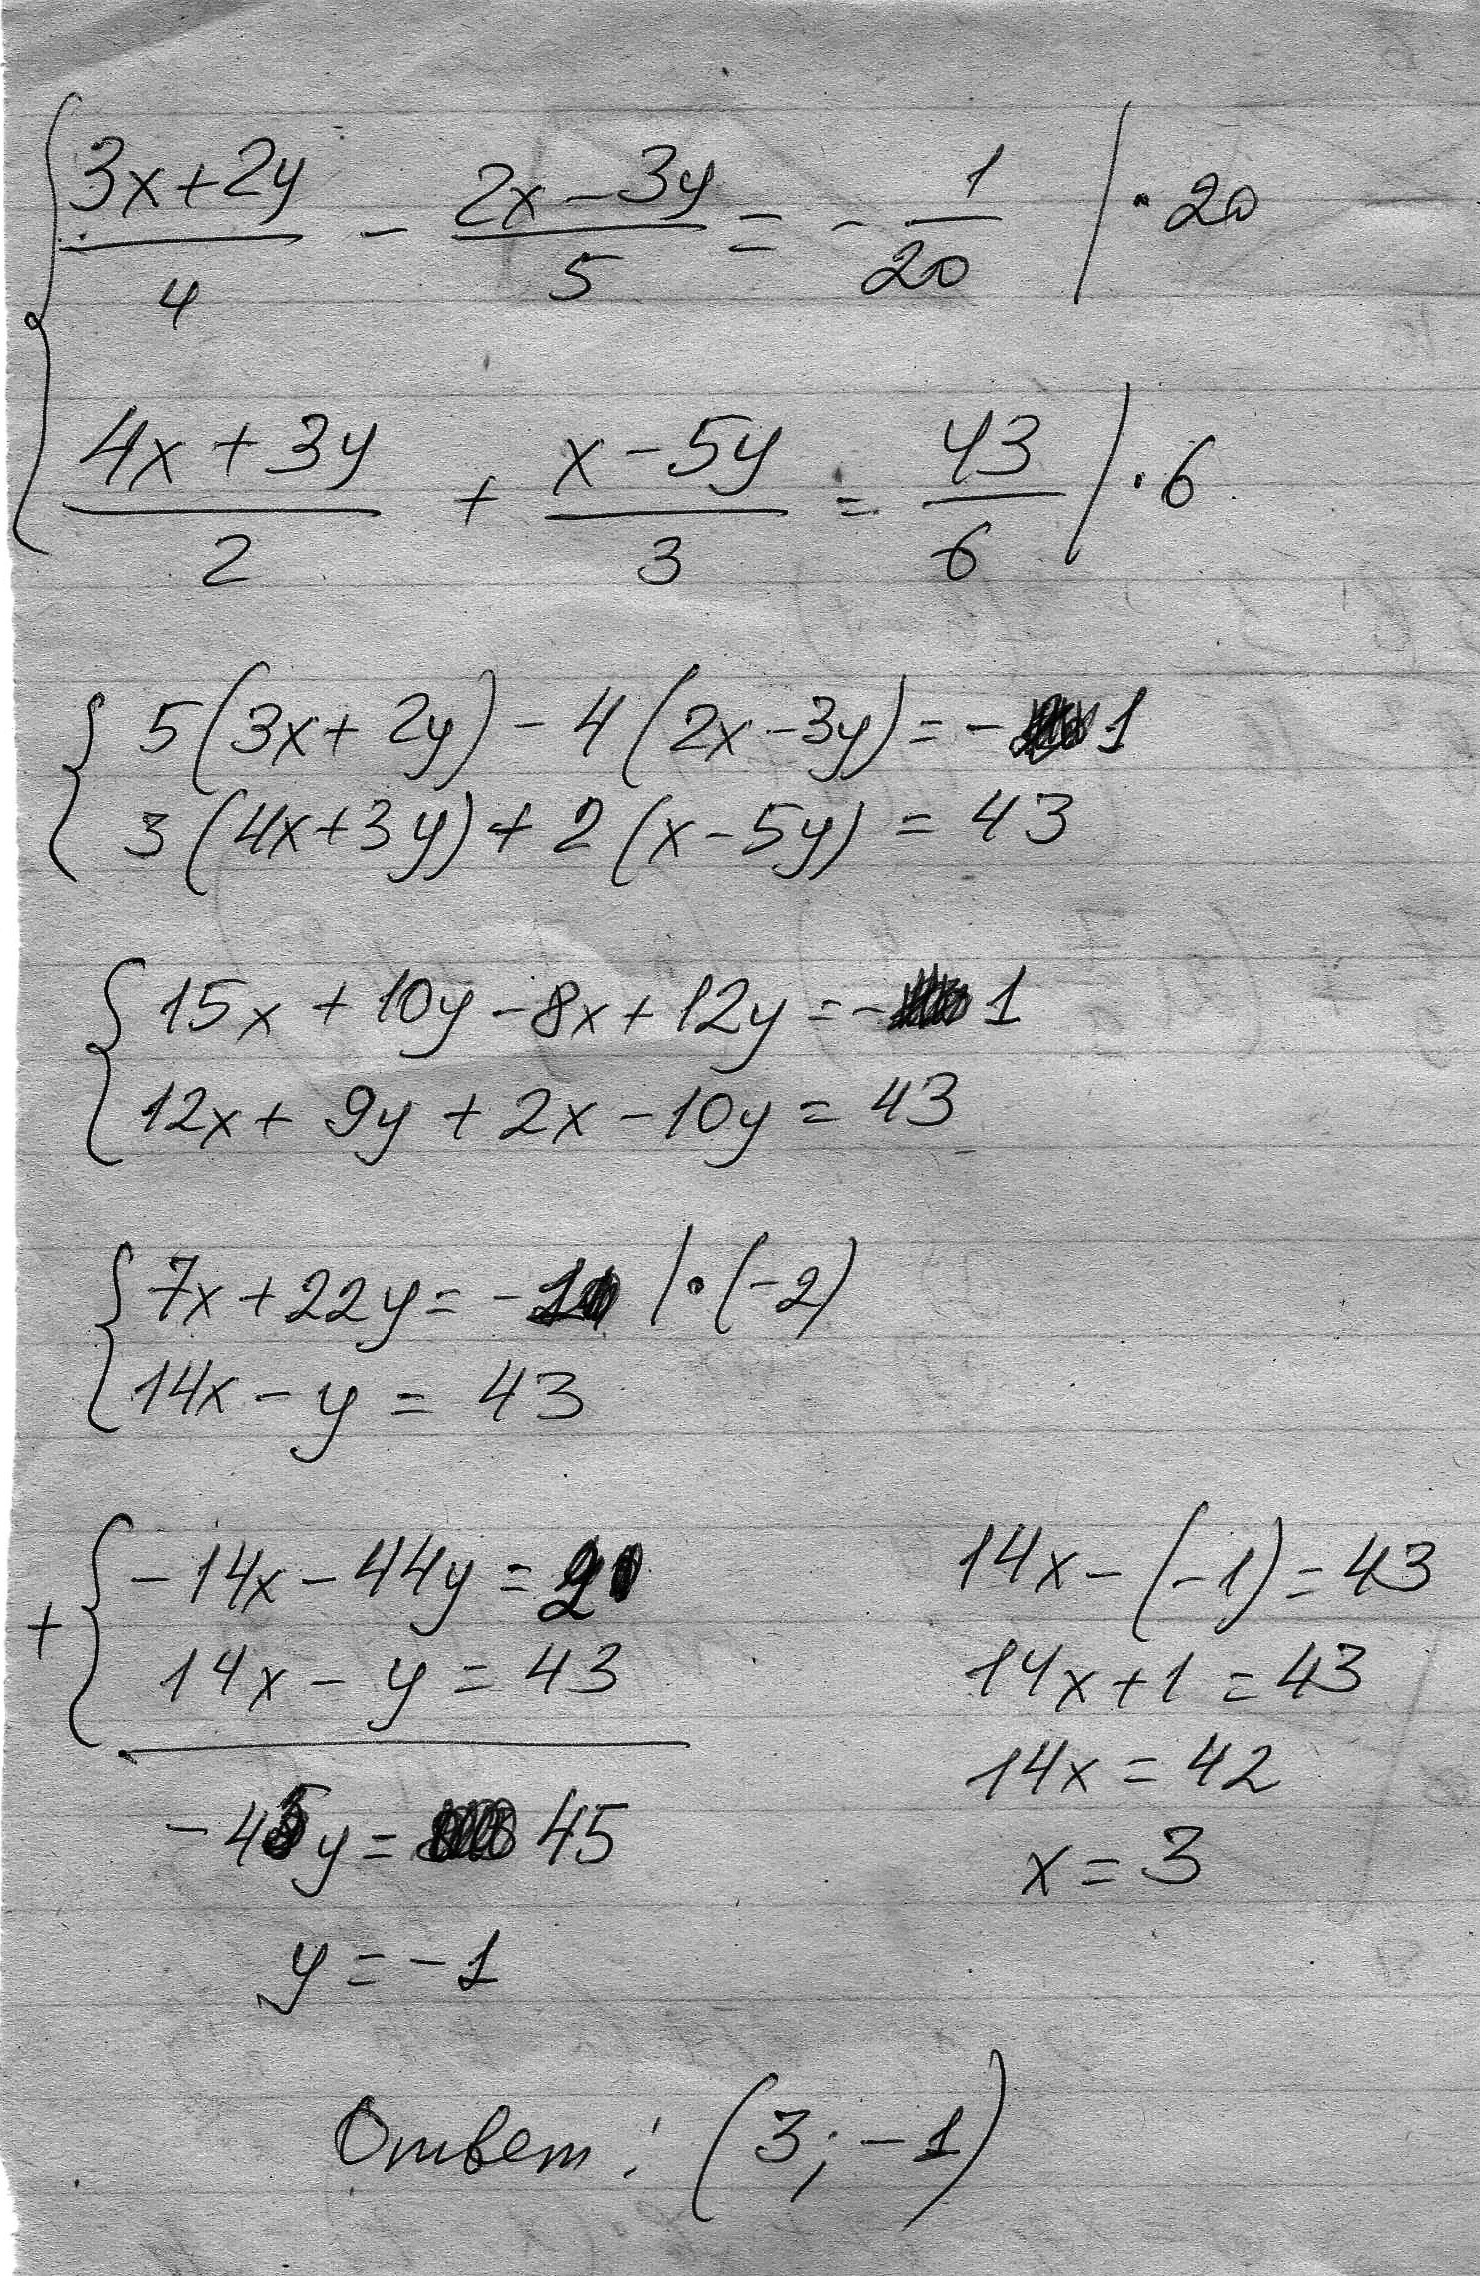 (3x+2y)/4 - (2x-3y)/5 = -1/20 | · 20
(4x+3y)/2 + (x-5y)/3 = 43/6 | · 6
5(3x+2y)-4(2x-3y)=-1
3(4x+3y)+2(x-5y)=43
15x+10y-8x+12y=-1
12x+9y+2x-10y=43
7x+22y=-1 | · (-2)
14x-y=43
-14x-44y=2
+ 14x-y=43
-45y=45
y=-1
14x-(-1)=43
14x+1=43
14x=42
x=3
Ответ: (3;-1)